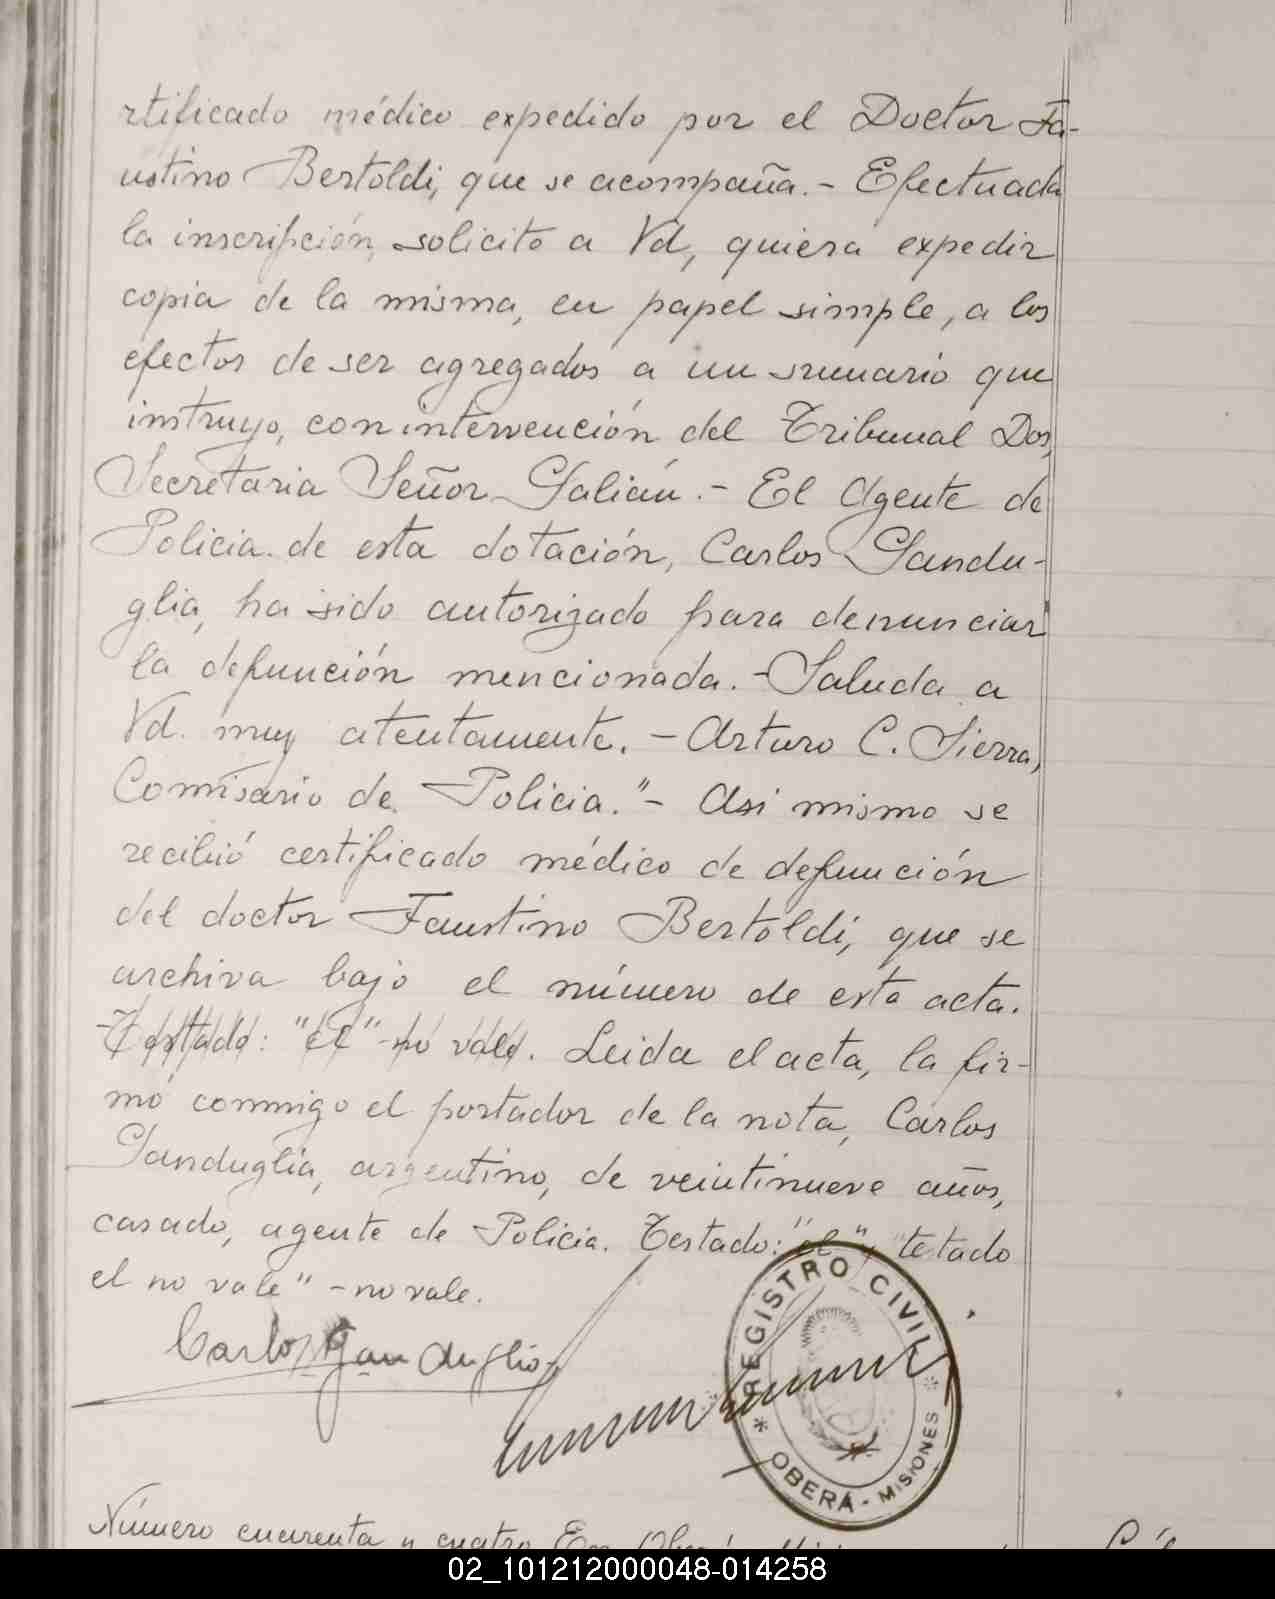 rtificado médico expedido por el Doctor Fa-
ustino Bertoldi, que se acompaña.- Efectuada
la inscripción, solicito a Vd, quiera expedir
copia de la misma, en papel simple, a los
efectos de ser agregados a un sumario que
instruyo, con intervención del Tribunal Dos,
Secretaria Señor Galián.- El Agente de
Policia de esta dotación, Carlos Gandu-
glia, ha sido autorizado para denunciar
la defunción mencionada.- Saluda a
Vd. muy atentamente.- Arturo C. Sierra,
Comisario de Policia."- Asi mismo se
recibió certificado médico de defunción
del doctor Faustino Bertoldi, que se
archiva bajo el número de esta acta.
-Testado: "el" -no vale. Leida el acta, la fir-
mó conmigo el portador de la nota, Carlos
Ganduglia, argentino, de veintinueve años,
casado, agente de Policia. Testado: "el", "testado
el no vale" -no vale.
Carlos Ganduglia
REGISTRO CIVIL
* OBERÁ - MISIONES *
Número cuarenta y cuatro En Oberá,
02_101212000048-014258